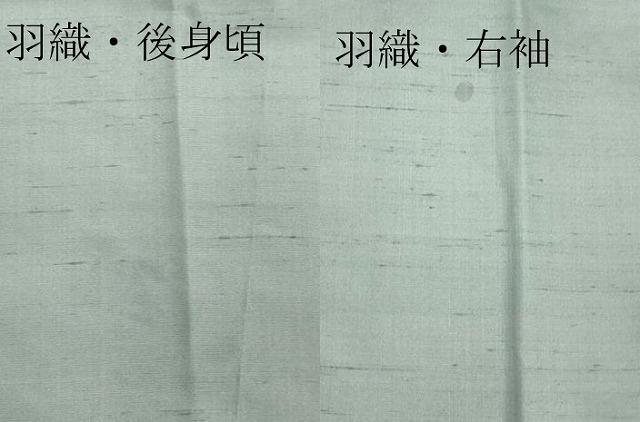 羽織・後身頃
羽織・右袖